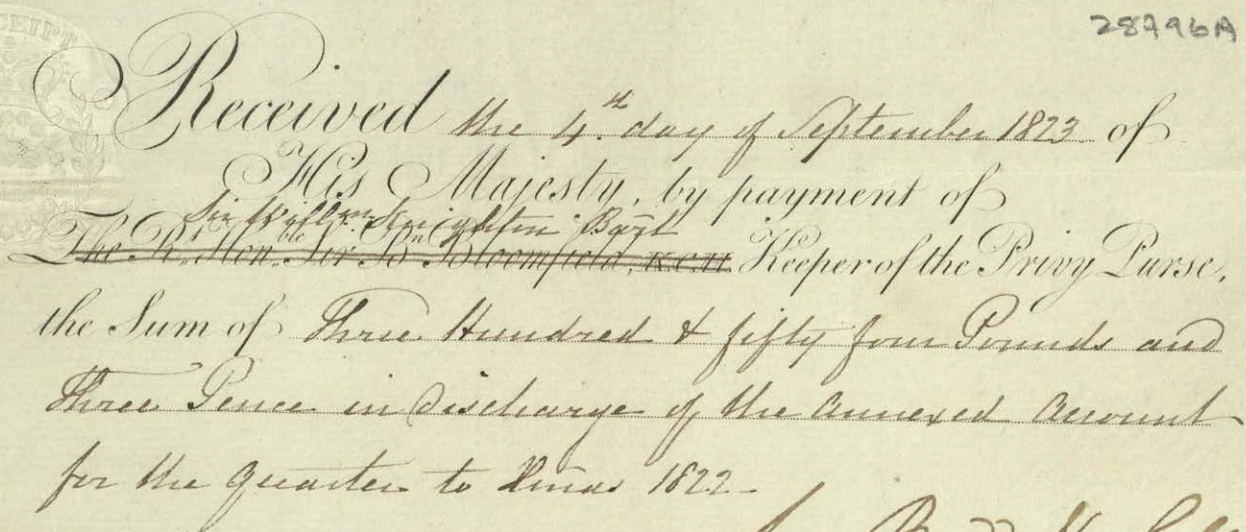 28796A
RECEIPT
Received the 4.th day of September 1823 of
His Majesty, by payment of
Sir Willm. Knighton Bart
The Rt. Honble. Sir Bn. Bloomfield, K.C.H. Keeper of the Privy Purse,
the Sum of Three Hundred & fifty four Pounds and
Three Pence in discharge of the Annexed Account
for the Quarter to Xmas 1822 -